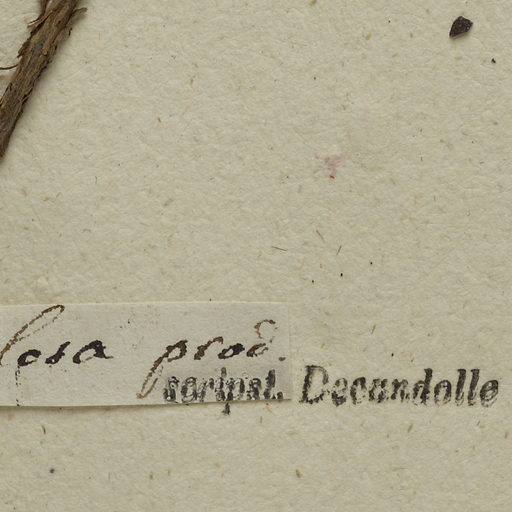 losa prod.
scripst. Decandolle